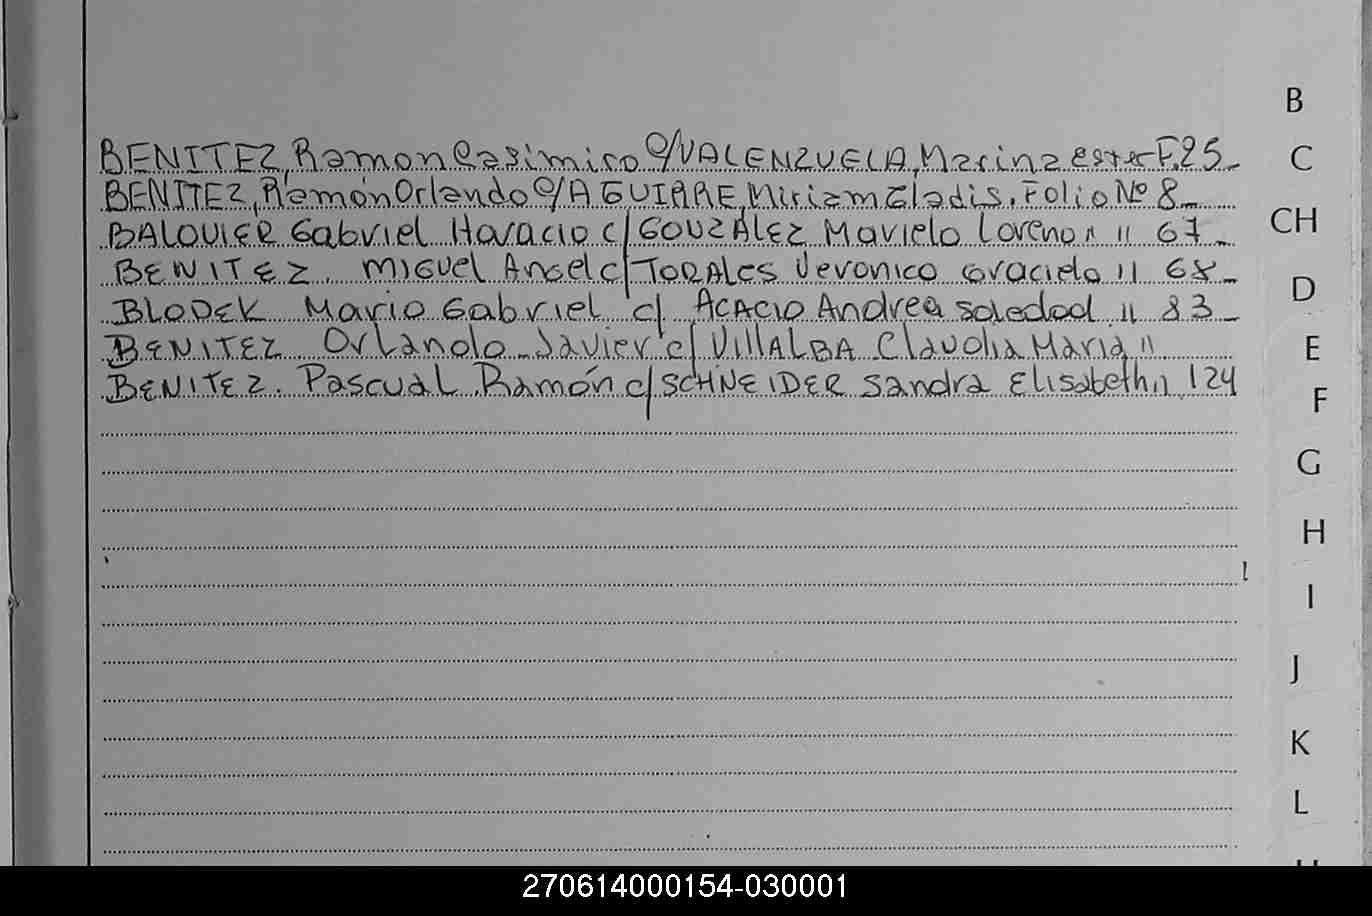 BENITEZ, Ramon Casimiro c/VALENZUELA, Marina ester F. 25_
BENITEZ, Ramón Orlando c/AGUIRRE, Miriam Gladis. Folio Nº 8_
BALOUIER Gabriel Horacio c/ GONZALEZ Mariela Lorena " 67_
BENITEZ. MIGUEL Angel c/ TORALES Veronica Graciela " 68_
BLODEK Mario Gabriel c/ Acacio Andrea Soledad " 83_
BENITEZ Orlando Javier c/ VILLALBA Claudia Maria "
BENITEZ. Pascual Ramón c/ SCHNEIDER Sandra Elisabeth " 124
B
C
CH
D
E
F
G
H
I
J
K
L
270614000154-030001